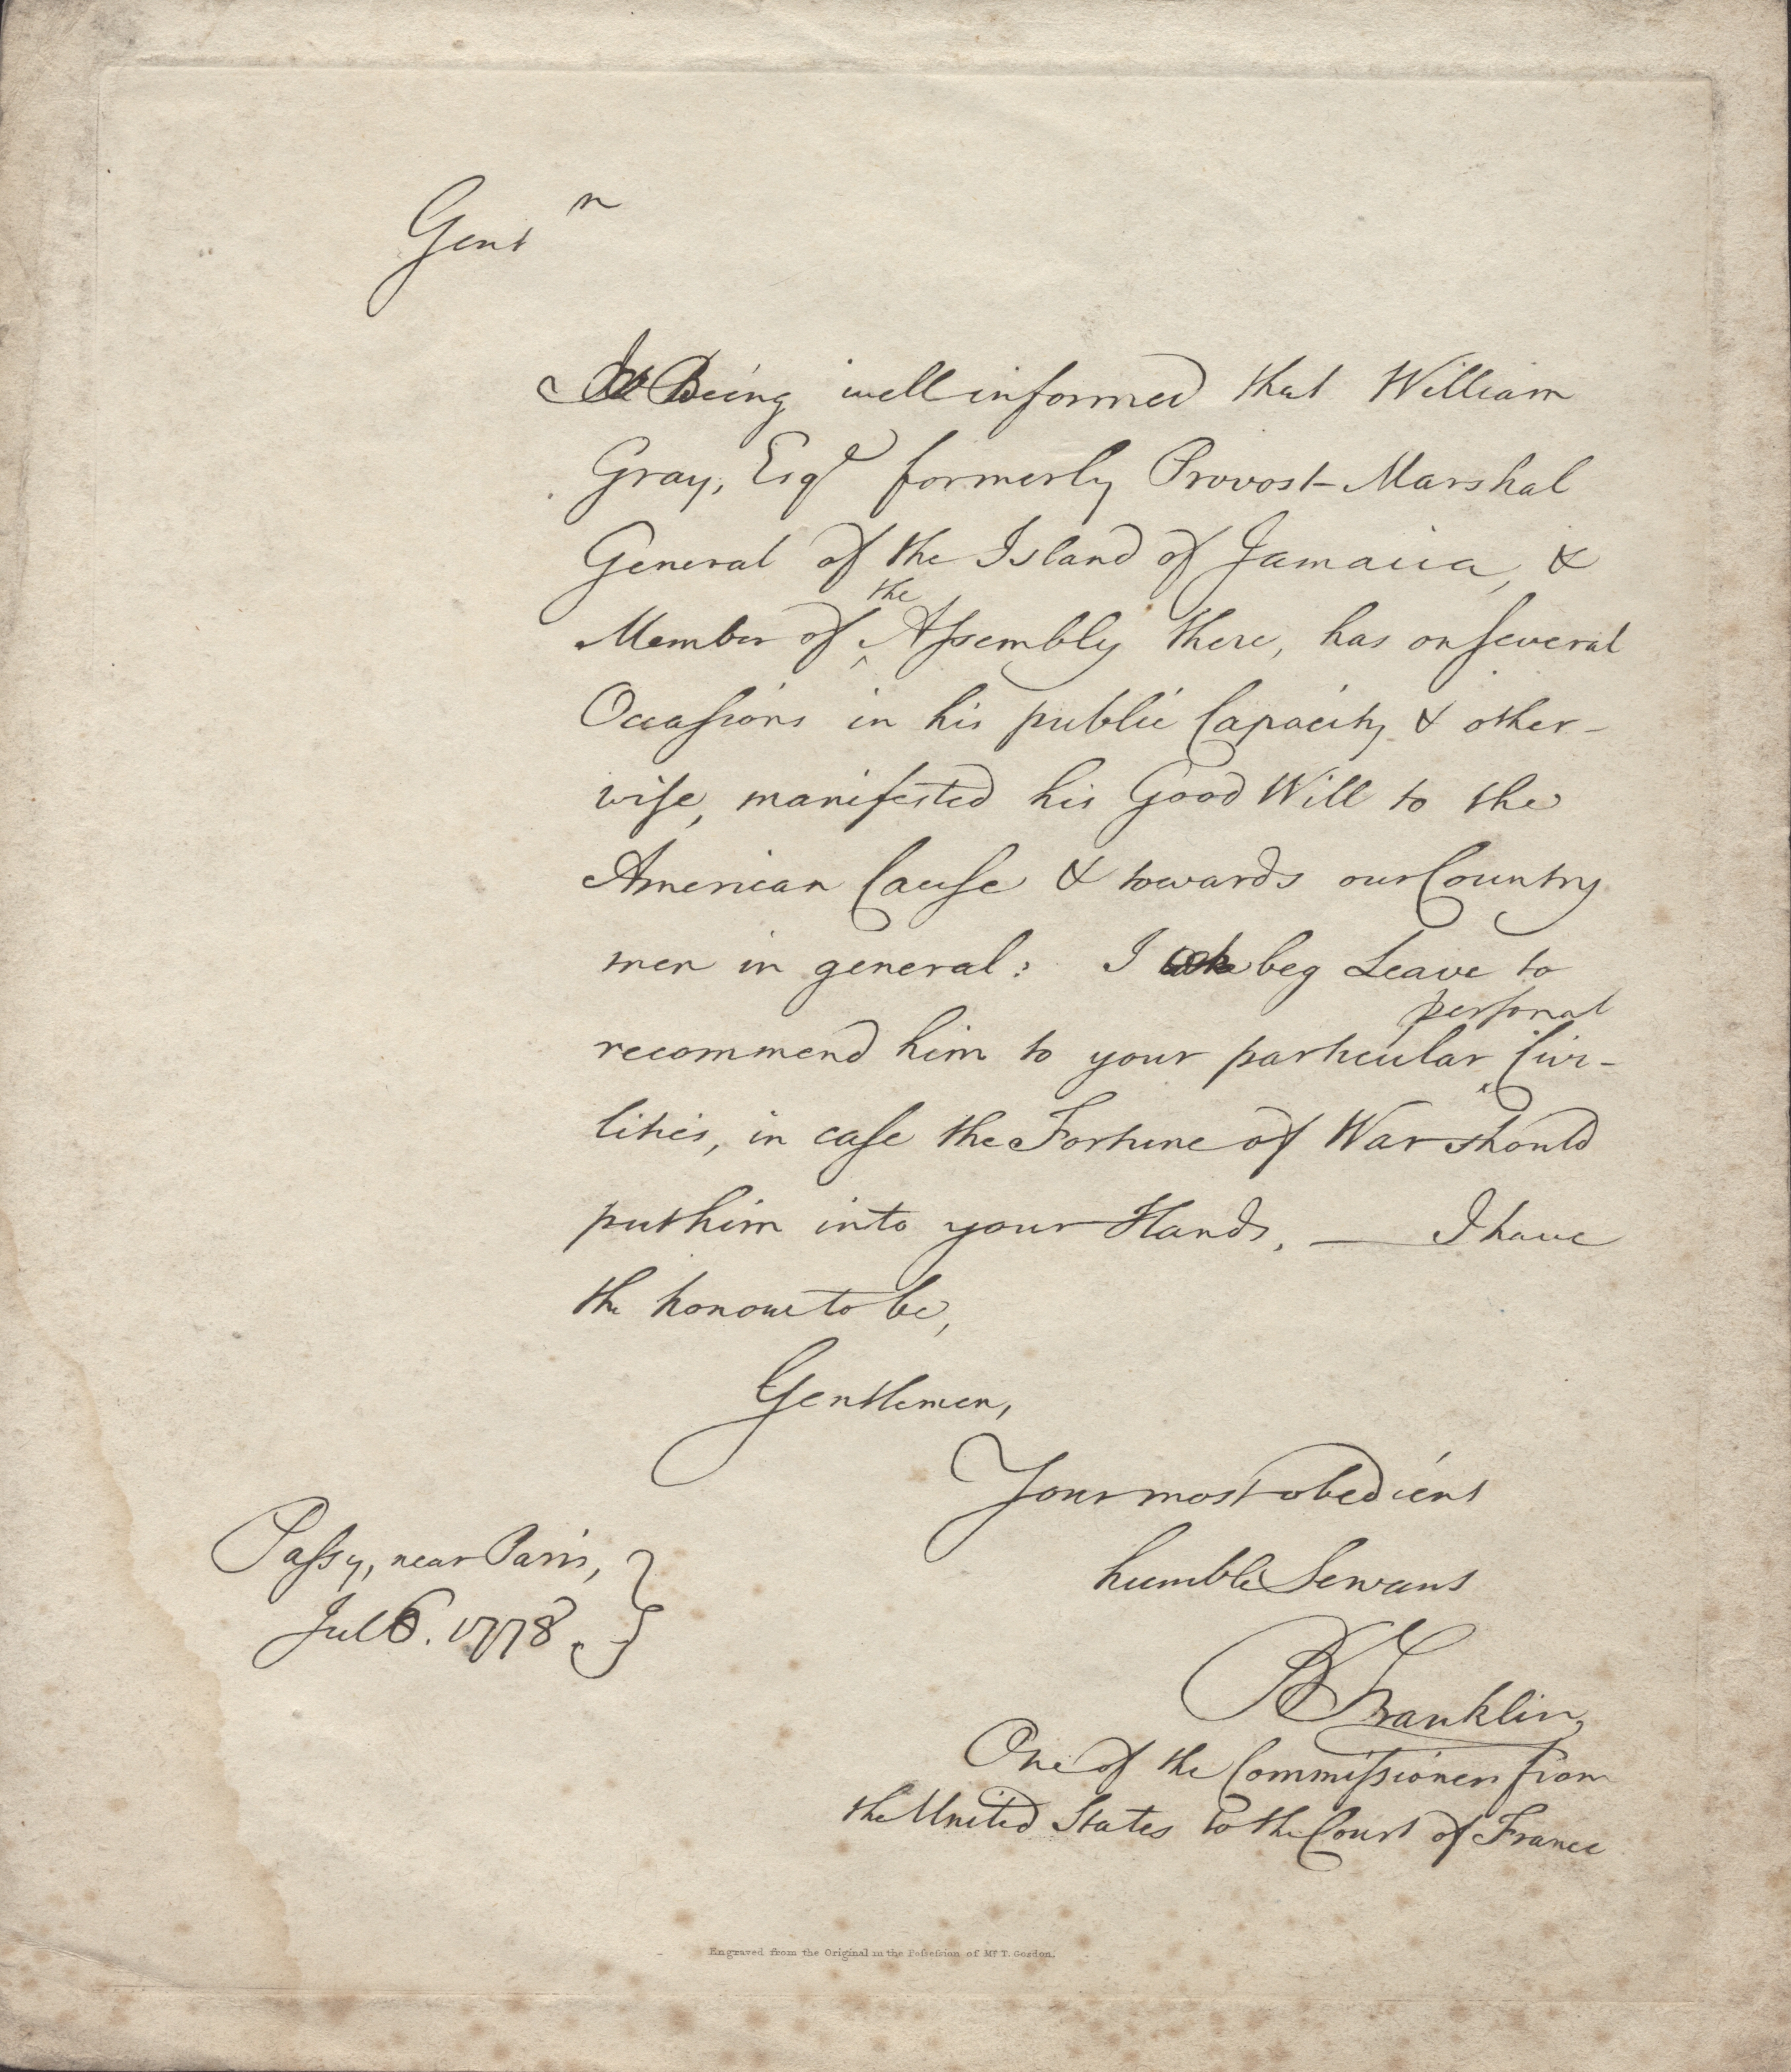 Gentn
Being well informed that William
Gray, Esqr formerly Provost-Marshal
General of the Island of Jamaica, &
Member of the Aſsembly there, has on ſeveral
Occaſions in his public Capacity & other-
wiſe, manifested his Good Will to the
American Cauſe & towards our Country
men in general: I beg Leave to
recommend him to your particular perſonal Civi-
lities, in caſe the Fortune of War should
put him into your Hands. — I have
the honour to be,
Gentlemen,
Your most obedient
humble Servant
Paſsy, near Paris,
Jul 6. 1778.
B Franklin,
One of the Commiſsioners from
the United States to the Court of France
Engraved from the Original in the Poſseſsion of Mr. T. Gordon.